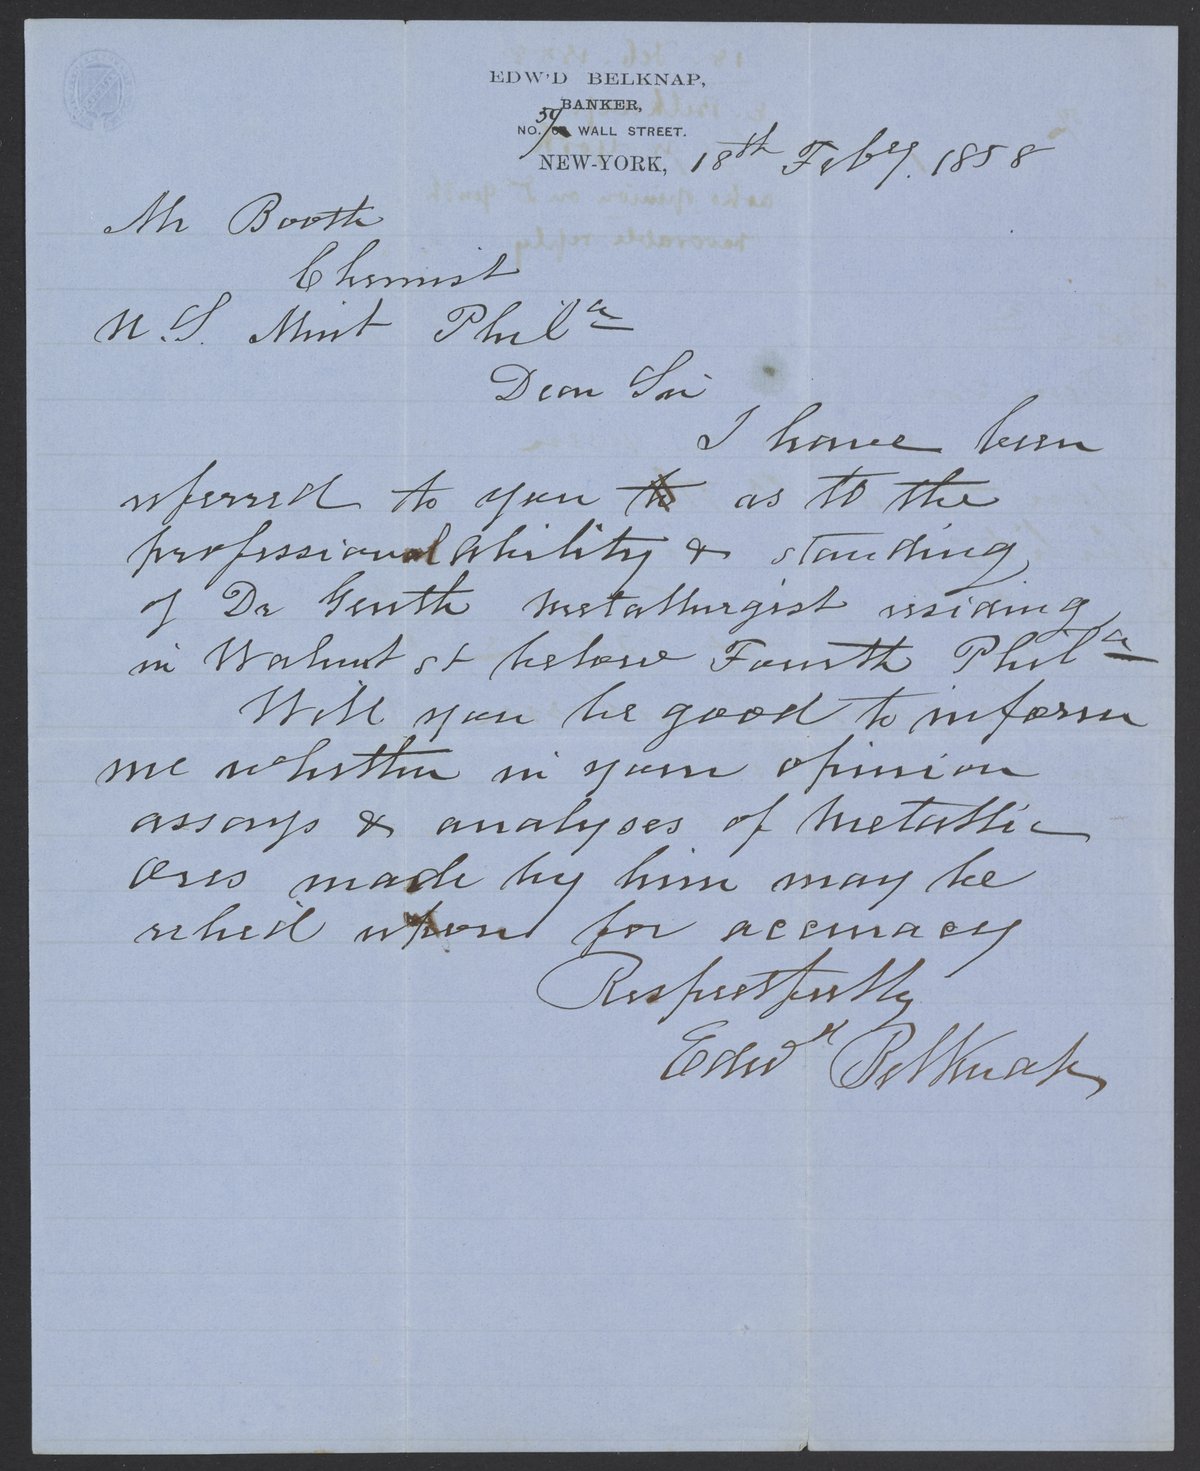 EDW'D BELKNAP,
BANKER,
NO. 59 WALL STREET.
NEW-YORK, 18th Feby. 1858
Mr Booth
Chemist
U.S. Mint Phila
Dear Sir
I have been
referred to you to as to the
professional ability & standing
of Dr Genth Metallurgist residing
in Walnut st below Fourth Phila
Will you be good to inform
me whether in your opinion
assays & analyses of Metallic
Ores made by him may be
relied upon for accuracy
Respectfully
Edwd Belknap
18 Feb. 1858
E. Belknap
asks opinion on Dr Genth
favorable reply